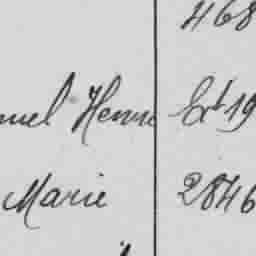 468
nuel Henri Ext 19
Marie 2846